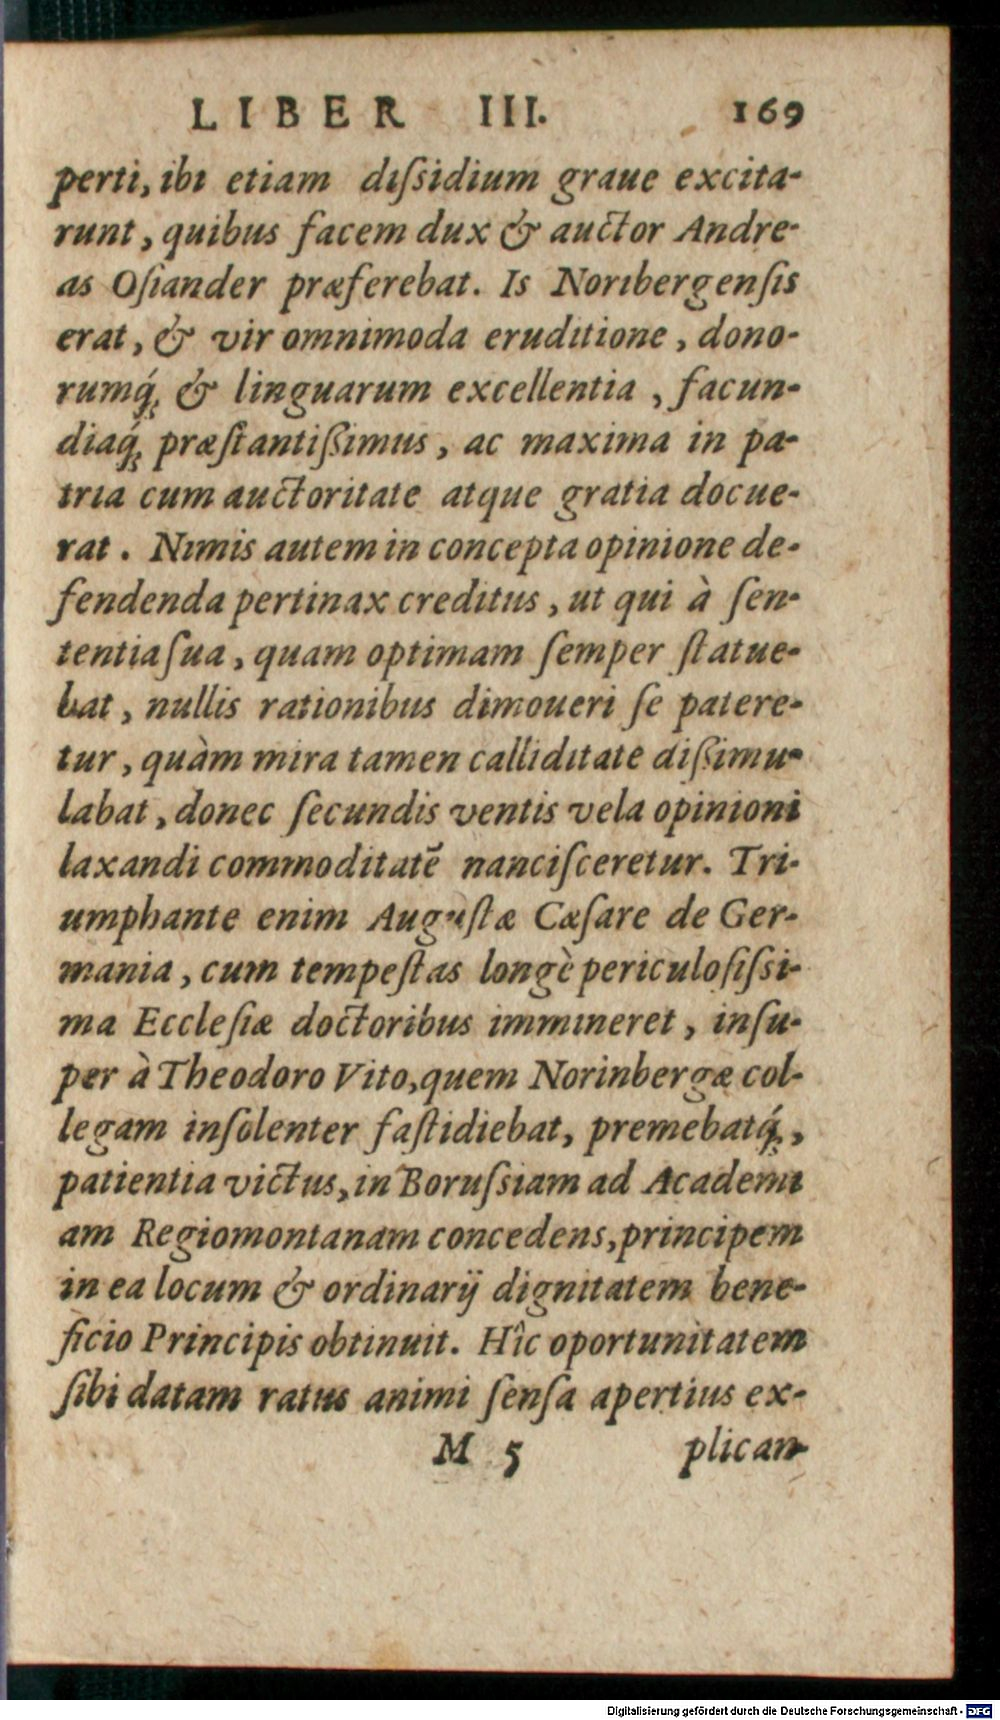 LIBER III. 169
perti, ibi etiam diſsidium graue excita-
runt, quibus facem dux & auctor Andre-
as Oſiander præferebat. Is Noribergenſis
erat, & vir omnimoda eruditione, dono-
rumq́; & linguarum excellentia, facun-
diaq́; præſtantißimus, ac maxima in pa-
tria cum auctoritate atque gratia docue-
rat. Nimis autem in concepta opinione de-
fendenda pertinax creditus, ut qui à ſen-
tentia ſua, quam optimam ſemper ſtatue-
bat, nullis rationibus dimoueri ſe patere-
tur, quàm mira tamen calliditate dißimu-
labat, donec ſecundis ventis vela opinioni
laxandi commoditatē nanciſceretur. Tri-
umphante enim Auguſtæ Cæſare de Ger-
mania, cum tempeſtas longè periculoſiſsi-
ma Eccleſiæ doctoribus immineret, inſu-
per à Theodoro Vito, quem Norinbergæ col-
legam inſolenter faſtidiebat, premebatq́;,
patientia victus, in Boruſsiam ad Academi
am Regiomontanam concedens, principem
in ea locum & ordinarij dignitatem bene-
ficio Principis obtinuit. Hîc oportunitatem
ſibi datam ratus animi ſenſa apertius ex-
M 5 plican-
Digitalisierung gefördert durch die Deutsche Forschungsgemeinschaft - DFG